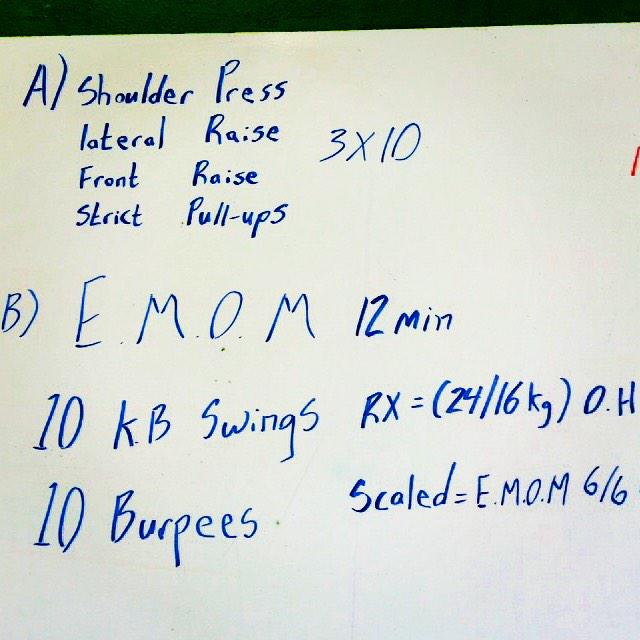 A) Shoulder Press
lateral Raise 3X10
Front Raise
Strict Pull-ups
B) E.M.O.M 12 min
10 K.B Swings RX = (24/16 kg) O.H
10 Burpees Scaled = E.M.O.M 6/6